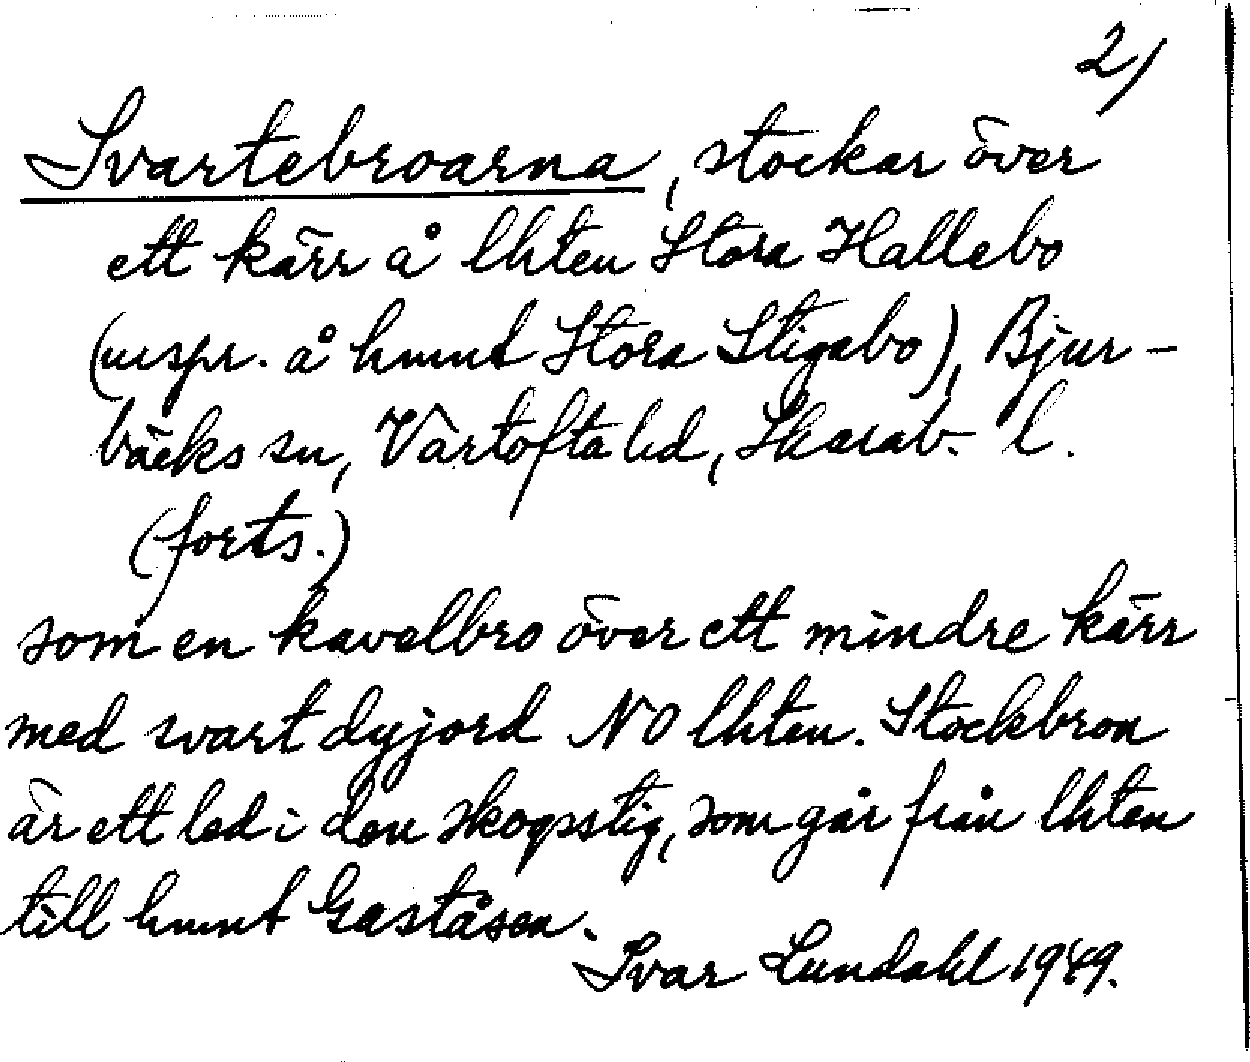 2/
Svartebroarna, stockar över
ett kärr å lhten Stora Hallebo
(urspr. å hmnt Stora Stigabo), Bjur-
bäcks sn, Vartofta hd, Skarab. l.
(forts.)
som en kavelbro över ett mindre kärr
med svart dyjord NO lhten. Stockbron
är ett led i den skogsstig, som går från lhten
till hmnt Gaståsen.
Ivar Lundahl 1949.